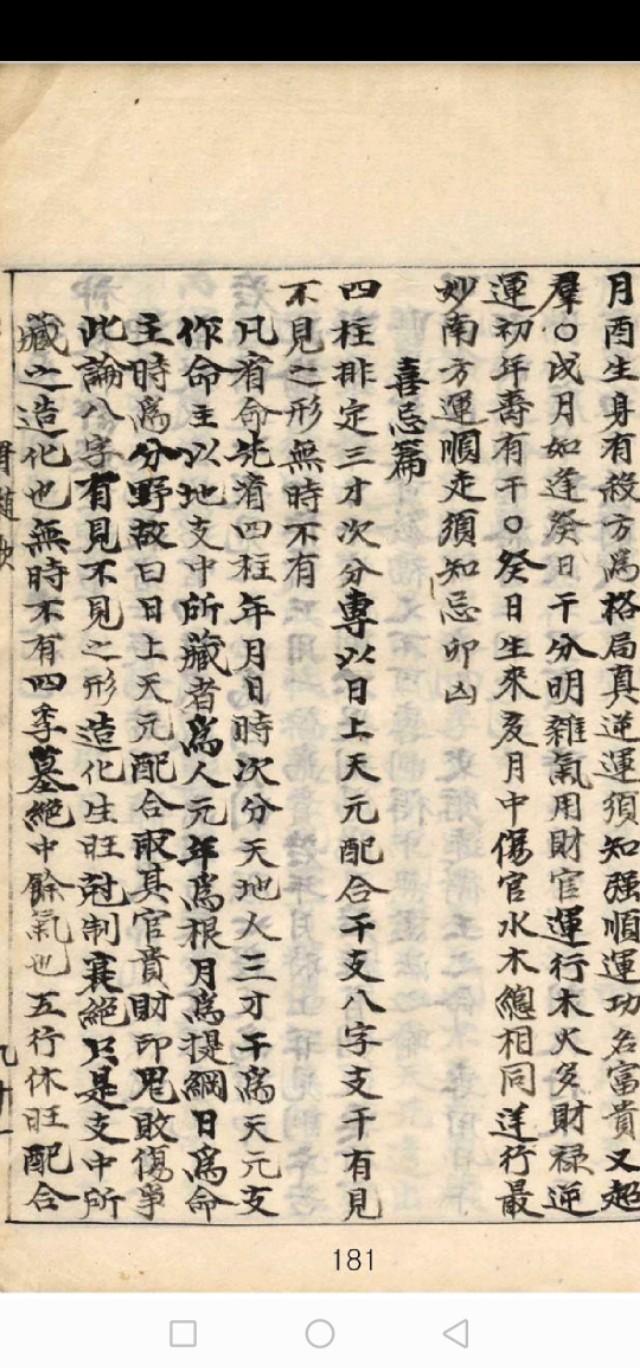 月酉生身有殺方爲格局真逆運須知强順運功名富貴又超
羣〇戌月如逢癸日干分明雜氣用財官運行木火多財禄逆
運初年壽有干〇癸日生來亥月中傷官水木總相同逆行最
妙南方運順走須知忌卯凶
喜忌篇
四柱排定三才次分專以日上天元配合干支八字支干有見
不見之形無時不有
凡看命先淯四柱年月日時次分天地人三才干爲天元支
作命主以地支中所藏者爲人元年爲根月爲提綱日爲命
主時爲分野故曰日上天元配合取其官貴財印鬼敗傷爭
此論八字有見不見之形造化生旺尅制衰絕只是支中所
藏之造化也無時不有四季墓絕中餘氣也五行休旺配合
181